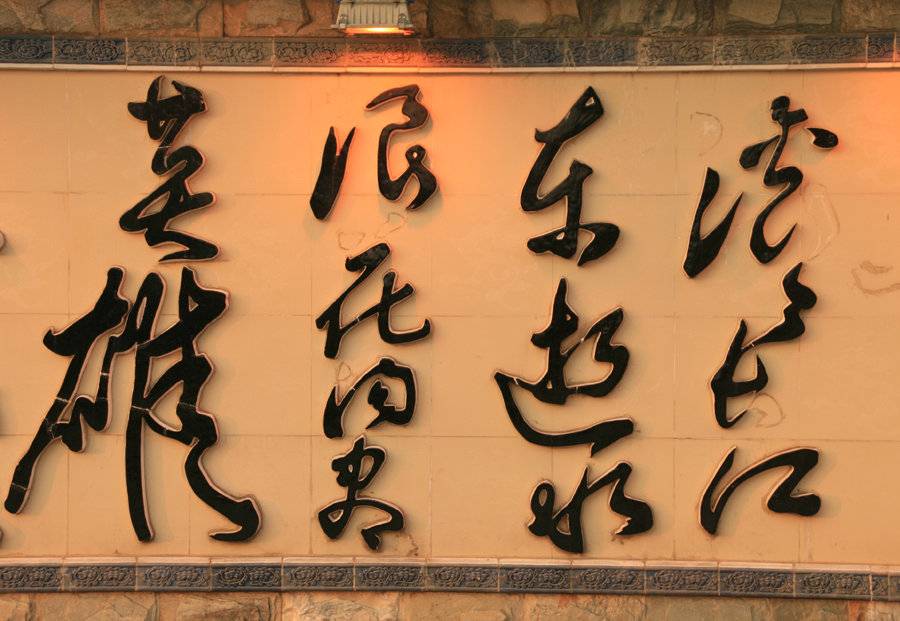 滚滚长江
东逝水
浪花淘尽
英雄